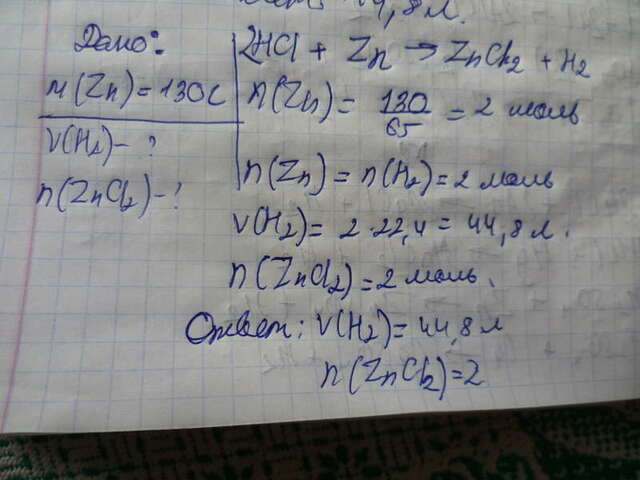 44,8 л.
Дано:
m(Zn) = 130г
V(H₂) - ?
n(ZnCl₂) - ?
2HCl + Zn → ZnCl₂ + H₂
n(Zn) = 130/65 = 2 моль
n(Zn) = n(H₂) = 2 моль
V(H₂) = 2·22,4 = 44,8 л.
n(ZnCl₂) = 2 моль.
Ответ: V(H₂) = 44,8 л
n(ZnCl₂) = 2